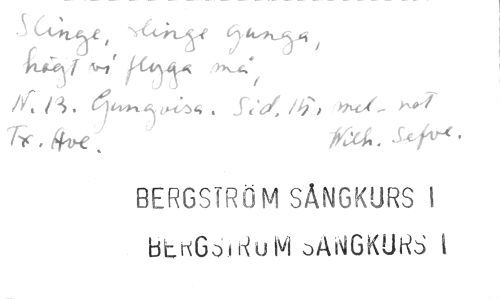 Slinge, slinge gunga,
högt vi flyga må,
N. 13. Gungvisa. Sid. 15, mel. not
Tx. Ave. Wilh. Sefve.
BERGSTRÖM SÅNGKURS I
BERGSTRÖM SÅNGKURS I